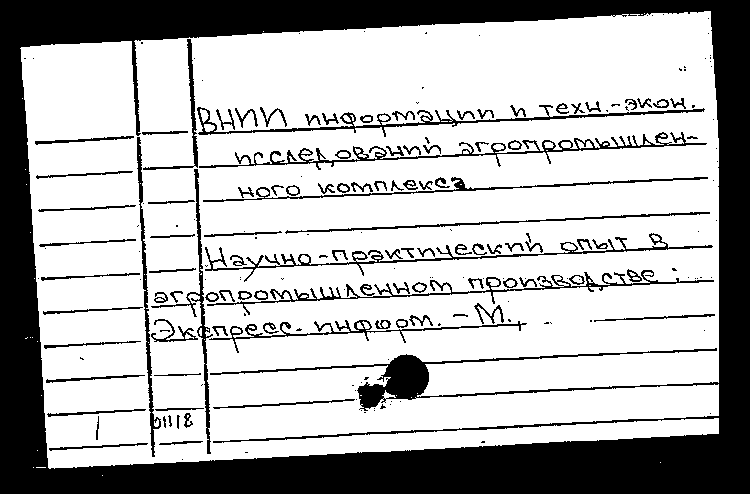 ВНИИ информации и техн.-экон.
исследований агропромышлен-
ного комплекса
Научно-практический опыт в
агропромышленном производстве:
Экспресс-информ. - М.,
1 01118